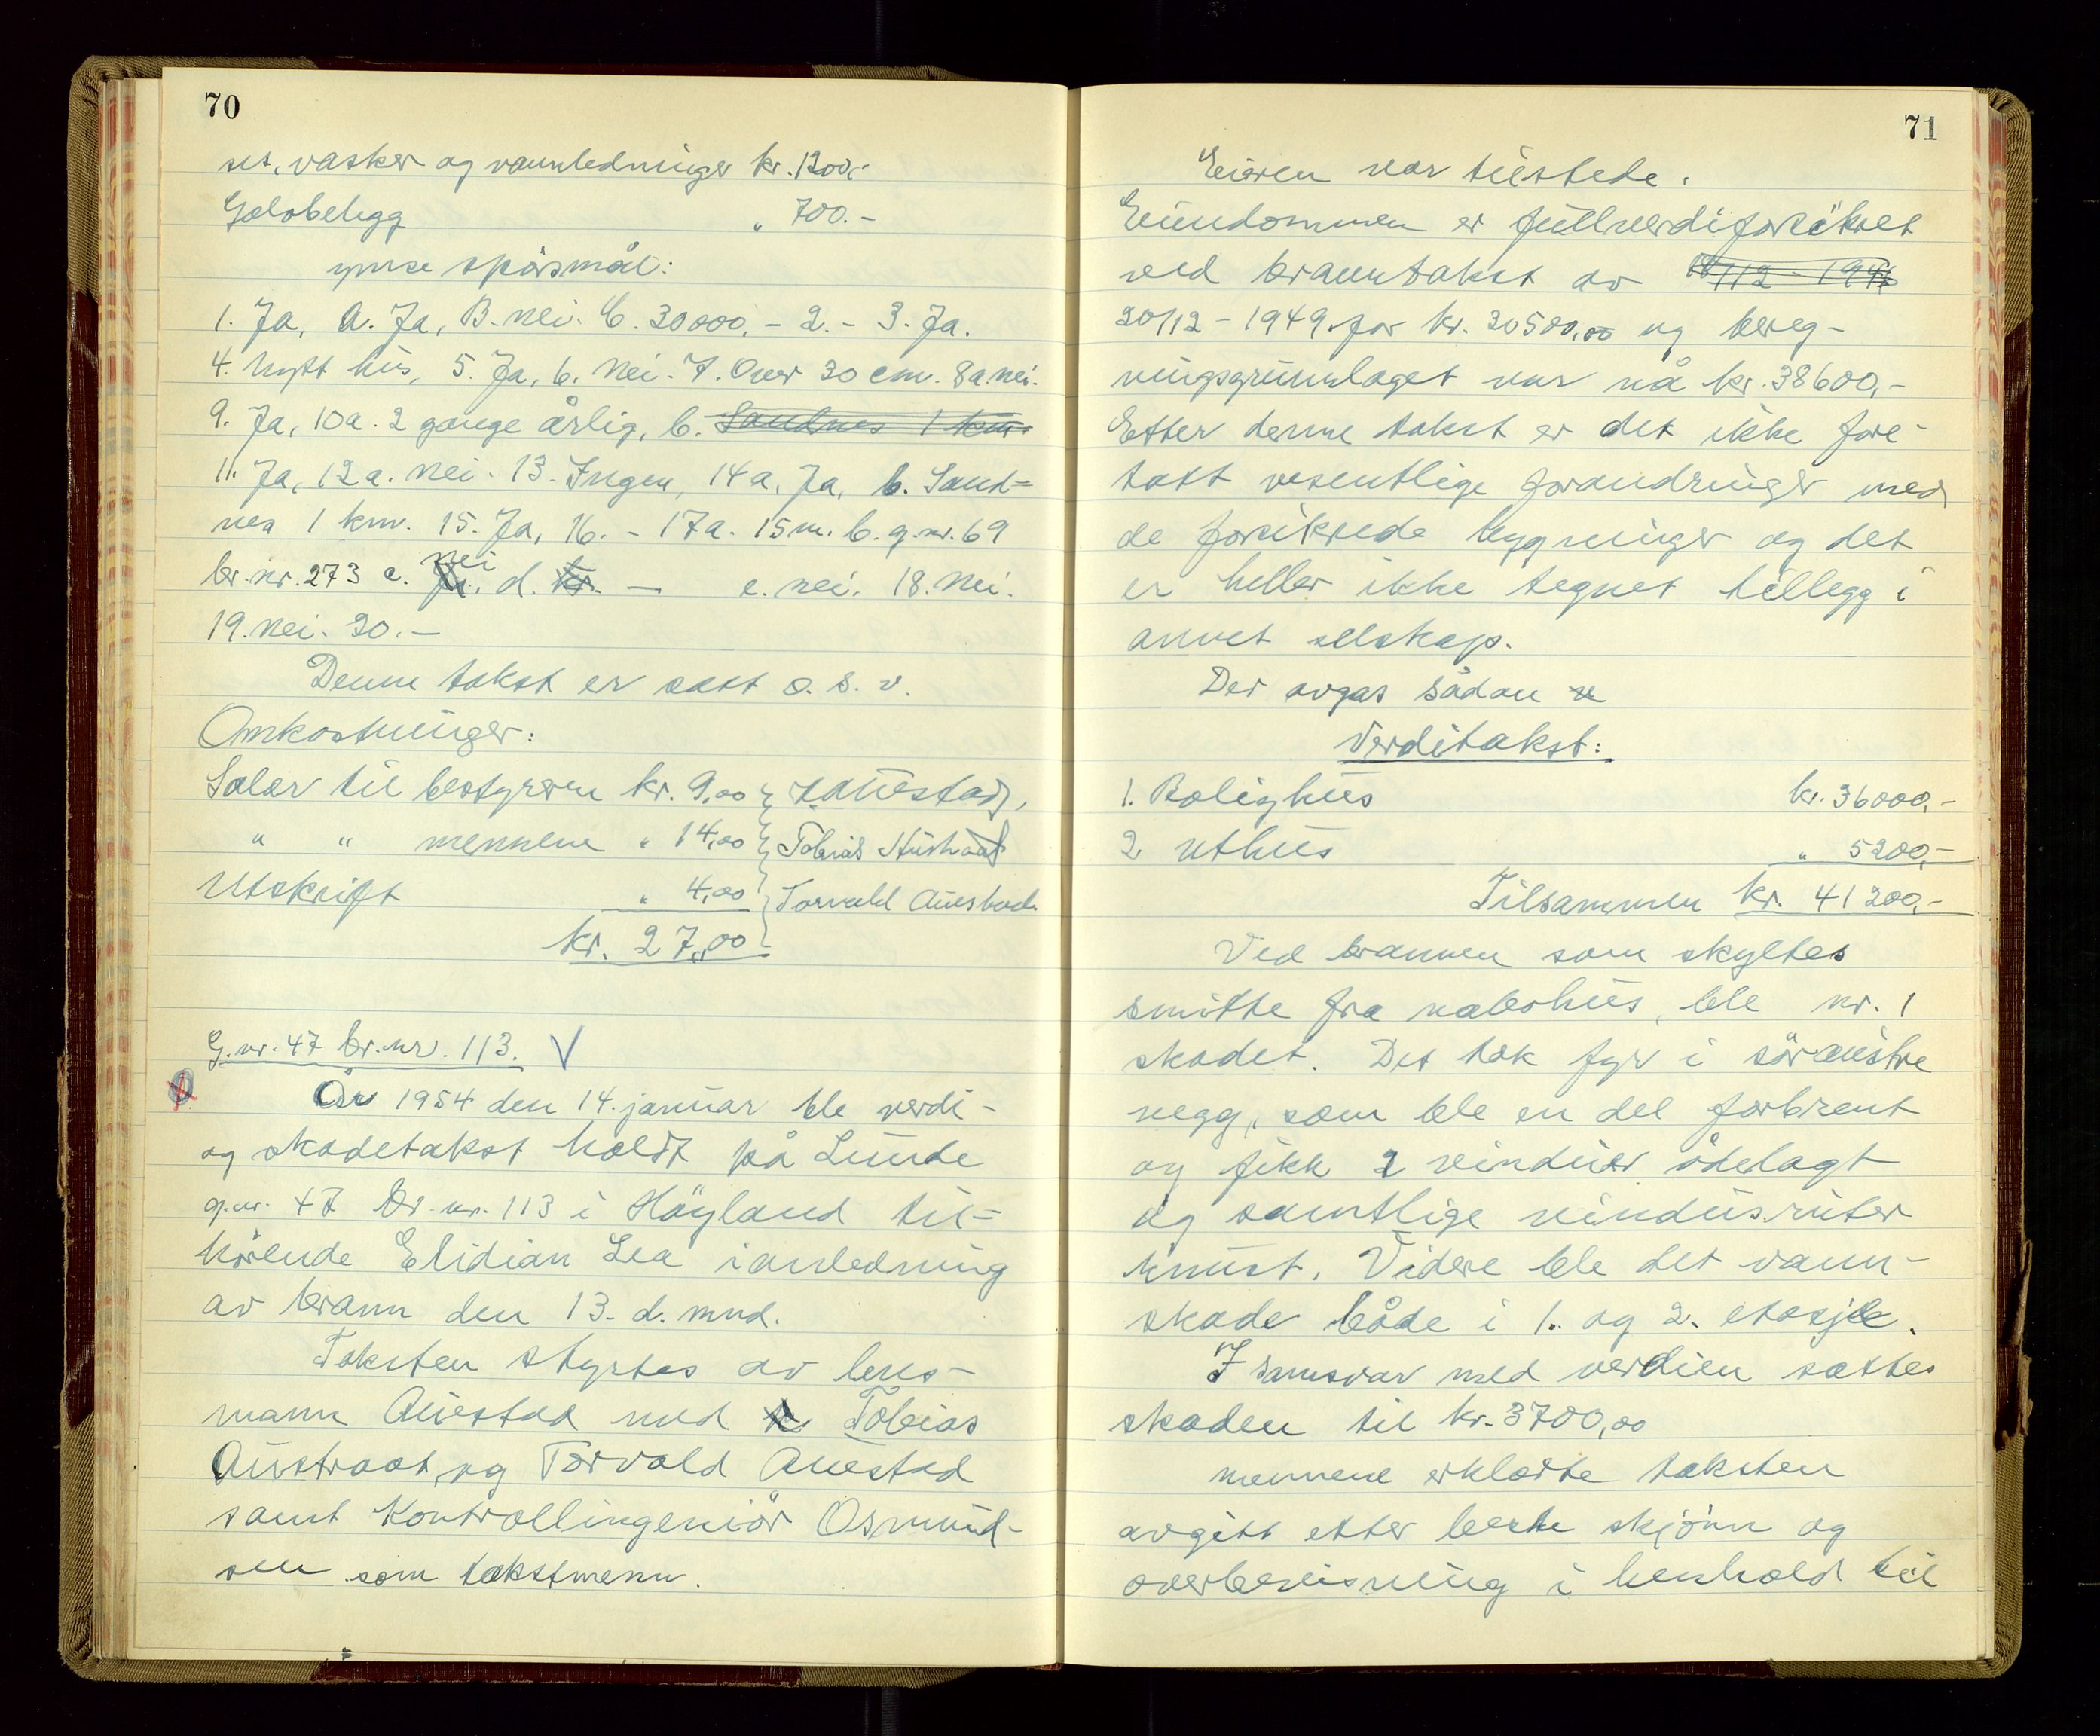 70
ses, vasker og vannledninger kr. 1200,-
Golvbelegg " 700.-
ymse spörsmål:
1. Ja, A. Ja, B. nei. C. 30000,- 2. - 3. Ja.
4. Nytt hus, 5. Ja, 6. Nei. 7. Over 30 cm. 8a. nei.
9. Ja, 10a. 2 gange årlig, b. Sandnes 1 km.
11. Ja, 12a. nei. 13. Ingen, 14a. Ja, b. Sand=
nes 1 km. 15. Ja, 16. - 17a. 15 m. b. g.nr. 69
br.nr. 273 c. nei d. kr. — e. nei. 18. Nei.
19. nei. 20. —
Denne takst er satt o. s. v.
Omkostninger:
Salær til bestyreren kr. 9,00 T. Auestad,
" " mennene " 14,00 Tobias Austraat
Utskrift " 4,00 Torvald Auestad.
kr. 27,00
G.nr. 47 br.nr. 113. V
År 1954 den 14. januar ble verdi-
og skadetakst holdt på Lunde
g.nr. 47 br.nr. 113 i Höyland til=
hörende Elidian Lea i anledning
av brann den 13. d. mnd.
Taksten styrtes av lens-
mann Auestad med Tobias
Austraat, og Torvald Auestad
samt Kontrollingeniör Osmund-
sen som takstmenn.
71
Eieren var tilstede.
Eiendommen er fullverdiforsikret
ved branntakst av 20/12 - 1946
20/12 - 1949 for kr. 20500,00 og bereg-
ningsgrunnlaget var nå kr. 38600,-
Etter denne takst er det ikke fore-
tatt vesentlige forandringer med
de forsikrede bygninger og det
er heller ikke tegnet tillegg i
annet selskap.
Der avgas sådan
Verditakst:
1. Bolighus kr. 36000,-
2 Uthus " 5200,-
Tilsammen kr. 41200,-
Ved brannen som skyltes
smitte fra nabohus, ble nr. 1
skadet. Det tok fyr i söraustre
vegg, som ble en del forbrent
og fikk 2 vinduer ödelagt
og samtlige vindusruter
knust. Videre ble det vann-
skade både i 1. og 2. etasje.
I samsvar med verdien sattes
skaden til kr. 3700,00
Mennene erklærte taksten
avgitt etter beste skjönn og
overbevisning i henhold til